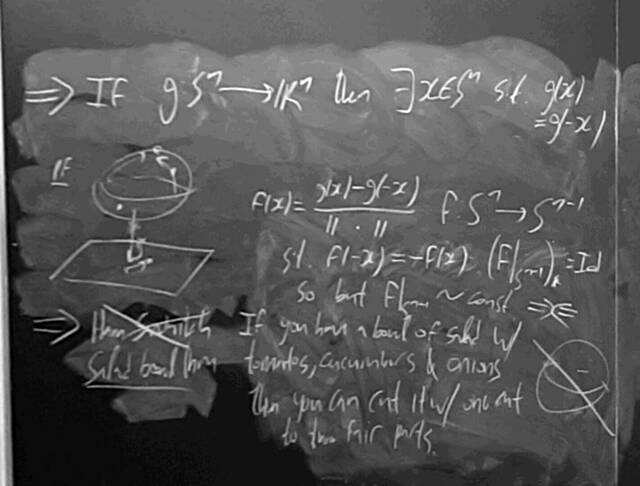 ⇒ If g: Sⁿ → ℝⁿ then ∃ x ∈ Sⁿ s.t. g(x)
= g(-x)
Pf
f(x) = g(x)-g(-x) / || · || f: Sⁿ → Sⁿ⁻¹
s.t. f(-x) = -f(x). (f|Sⁿ⁻¹)⁎ = Id
so but f| ~ const ⇒⇐
⇒ Ham Sandwich
Salad bowl thm
If you have a bowl of salad w/
tomatoes, cucumbers & onions
then you can cut it w/ one cut
to two fair parts.